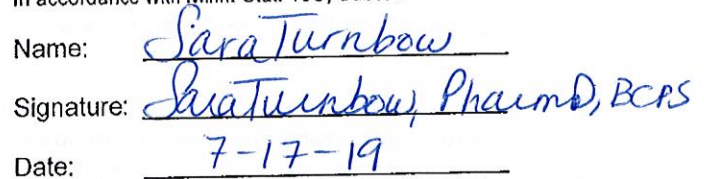 Name: Sara Turnbow
Signature: Sara Turnbow, PharmD, BCPS
Date: 7-17-19